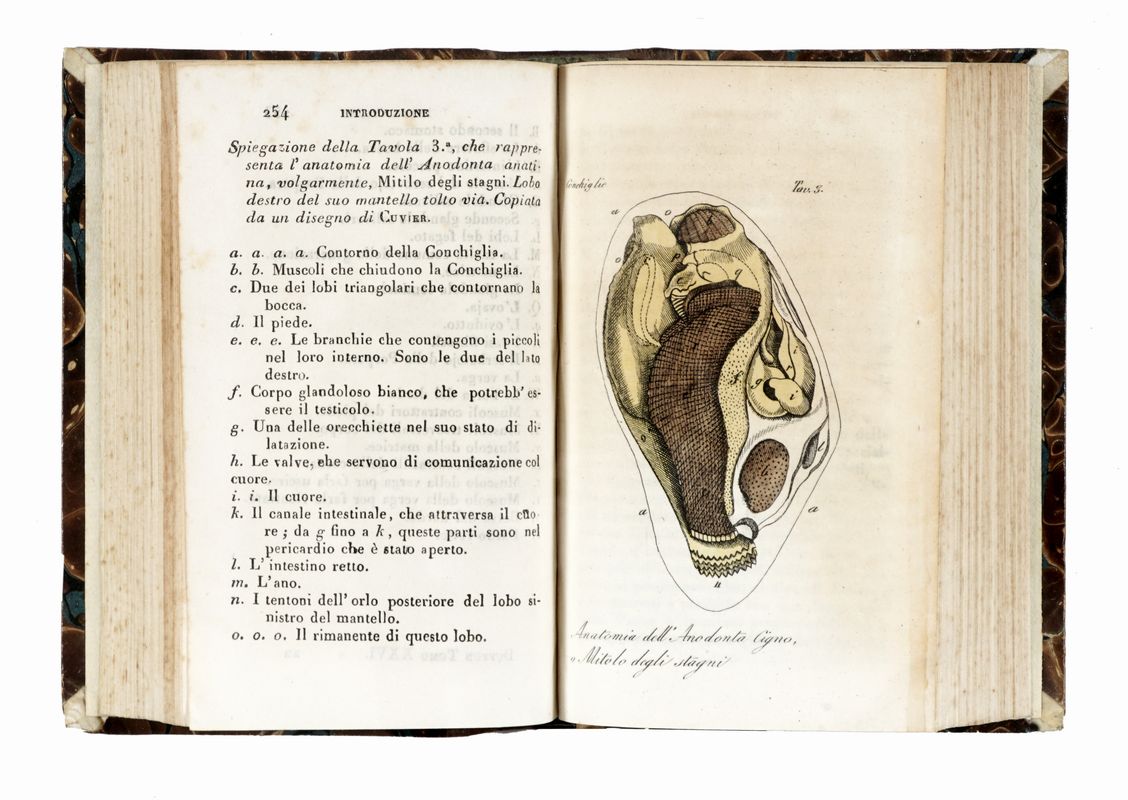 254 INTRODUZIONE
Spiegazione della Tavola 3.ª, che rappre-
senta l'anatomia dell'Anodonta anati-
na, volgarmente, Mitilo degli stagni. Lobo
destro del suo mantello tolto via. Copiata
da un disegno di CUVIER.
a. a. a. a. Contorno della Conchiglia.
b. b. Muscoli che chiudono la Conchiglia.
c. Due dei lobi triangolari che contornano la
bocca.
d. Il piede.
e. e. e. Le branchie che contengono i piccoli
nel loro interno. Sono le due del lato
destro.
f. Corpo glandoloso bianco, che potrebb'es-
sere il testicolo.
g. Una delle orecchiette nel suo stato di di-
latazione.
h. Le valve, che servono di comunicazione col
cuore.
i. i. Il cuore.
k. Il canale intestinale, che attraversa il cuo-
re; da g fino a k, queste parti sono nel
pericardio che è stato aperto.
l. L'intestino retto.
m. L'ano.
n. I tentoni dell'orlo posteriore del lobo si-
nistro del mantello.
o. o. o. Il rimanente di questo lobo.
Conchiglie Tav. 3.
a
o
a
a
n
Anatomia dell'Anodonta Cigno,
o Mitolo degli stagni